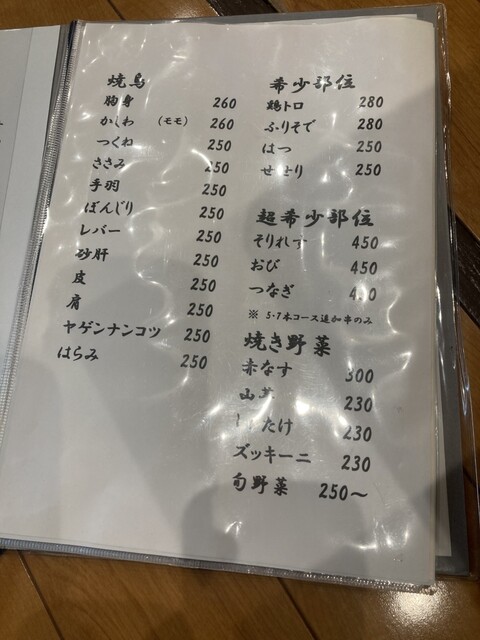 焼鳥
胸身 260
かしわ (モモ) 260
つくね 250
ささみ 250
手羽 250
ぼんじり 250
レバー 250
砂肝 250
皮 250
肩 250
ヤゲンナンコツ 250
はらみ 250
希少部位
鶏トロ 280
ふりそで 280
はつ 250
せせり 250
超希少部位
そりれす 450
おび 450
つなぎ
※ 5・7本コース追加串のみ
焼き野菜
赤なす 300
山 230
たけ 230
ズッキーニ 230
旬野菜 250～